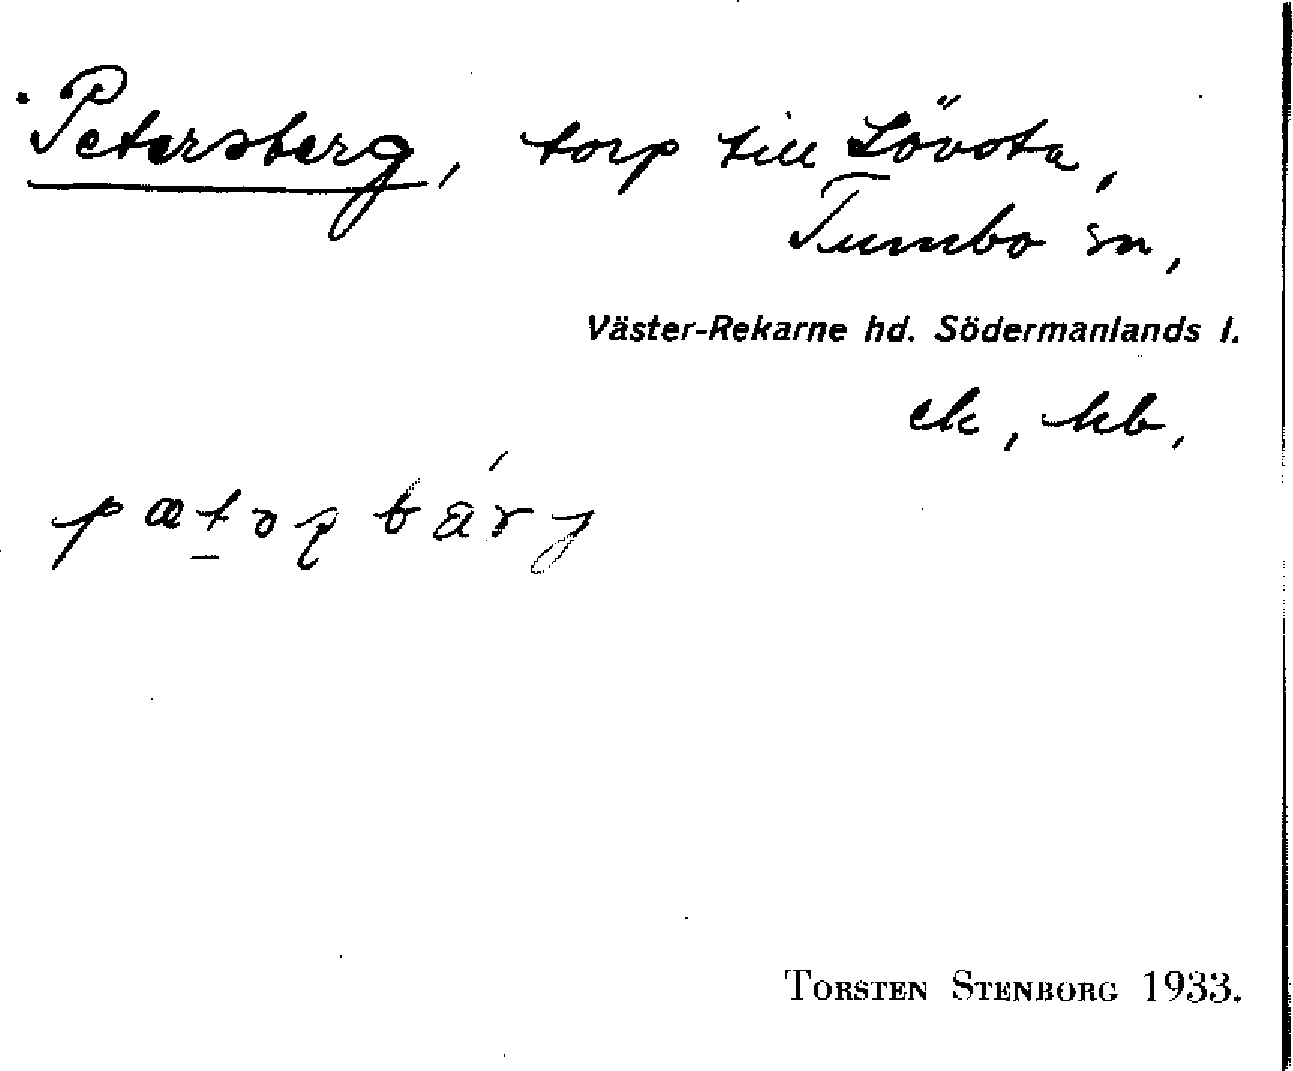 Petersberg, torp till Lövsta,
Tumbo sn,
Väster-Rekarne hd. Södermanlands l.
ek, kb,
TORSTEN STENBORG 1933.